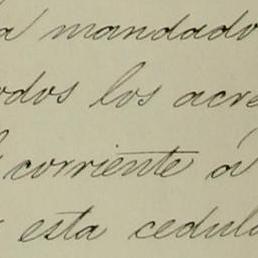 a mandado
odos los acre
corriente á
esta cedula